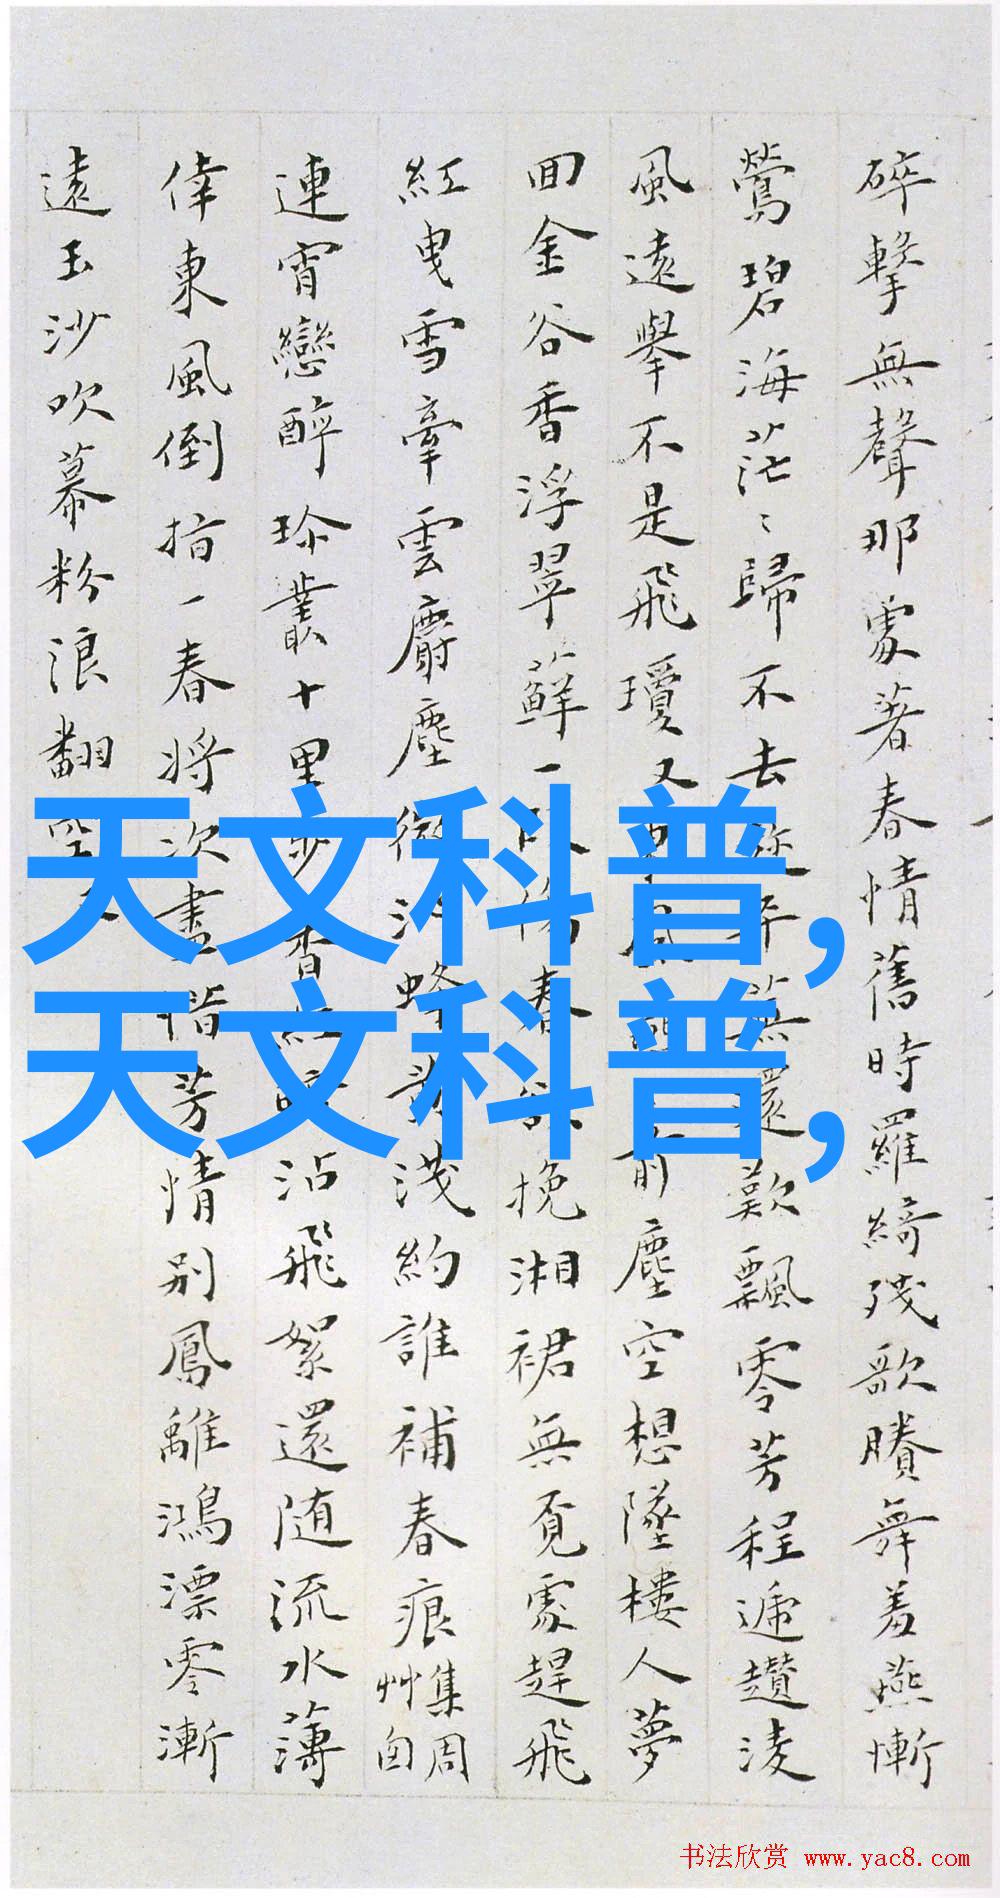 碎擊無聲那處著春情舊時羅綺殘歌賸舞羞燕慚
鶯碧海茫〻歸不去還歎飄零芳程遞趲淩
風遠舉不是飛瓊又前塵空想墜樓人夢
回金谷香浮翠蘚一春挽湘裙無覓處趕飛
紅曳雪牽雲麝塵蜂淺約誰補春痕
集周
艸囪
連宵戀醉珍叢十里香沾飛絮還随流水薄
倖東風倒指一春將次盡惜芳情別鳳離鴻漂零漸
遠玉沙吹幕粉浪翻空
天文科普,
天文科普,
书法欣赏 www.yac8.com